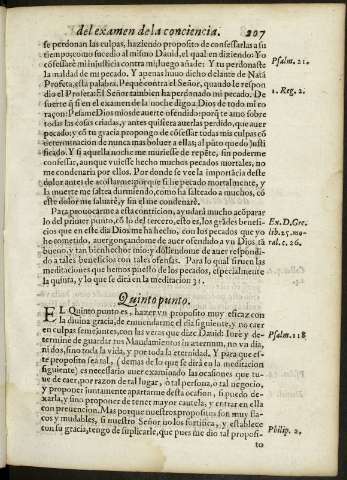 del examen de la conciencia. 207
se perdonan las culpas, haziendo proposito de confessarlas a su
tiempo; como sucedio al mismo Dauid, el qual en diziendo: Yo
cõfessarè mi injusticia contra mi, luego añade: Y tu perdonaste
la maldad de mi pecado. Y apenas huuo dicho delante de Natã
Profeta, esta palabra, Pequè contra el Señor, quando le respon
dio el Profeta: El Señor tambien ha perdonado tu pecado. De
suerte q̃ si en el examen de la noche digo a Dios de todo mi co
raçon: Pesame Dios mio de auerte ofendido: porq̃ te amo sobre
todas las cosas criadas, y antes quisiera auerlas perdido, que auer
pecado; y cõ tu gracia propongo de cõfessar todas mis culpas cõ
determinacion de nunca mas boluer a ellas; al pũto quedo justi
ficado. Y si aquella noche me muriesse de repẽte, sin poderme
confessar, aunque vuiesse hecho muchos pecados mortales, no
me condenaria por ellos. Por donde se vee la importãcia deste
dolor antes de acostarme: porque si he pecado mortalmente, y
la muerte me saltea durmiendo, como ha salteado a muchos, cõ
este dolor me saluarè, y sin el me condenarè.
Para prouocarme a esta contricion, ayudarà mucho acõparar
lo del primer punto, cõ lo del tercero, esto es, los grãdes benefi-
cios que en este dia Dios me ha hecho, con los pecados que yo
he cometido, auergonçandome de auer ofendido a vn Dios tã
bueno, y tan bienhechor mio; y doliendome de auer respondi-
do a tales beneficios con tales ofensas. Para lo qual siruen las
meditaciones que hemos puesto de los pecados, especialmente
la quinta, y lo que se dirà en la meditacion 31.
Psalm. 21.
1. Reg. 2.
Ex. D. Gre.
lib. 25. mo-
ral. c. 26.
Quinto punto.
EL Quinto punto es, hazer vn proposito muy eficaz con
la diuina gracia, de enmendarme el dia siguiente, y no caer
en culpas semejantes, con las veras que dize Dauid: Iurè y de-
termine de guardar tus Mandamientos in aeternum, no vn dia,
ni dos, sino toda la vida, y por toda la eternidad. Y para que es-
te proposito sea tal, (demas de lo que se dirà en la meditacion
siguiente) es necessario auer examinado las ocasiones que tu-
ue de caer, por razon de tal lugar, ò tal persona, o tal negocio,
y proponer juntamente apartarme desta ocasion, si puedo de-
xarla, y sino proponer de tener mayor cautela, y entrar en ella
con preuencion. Mas porque nuestros propositos son muy fla-
cos y mudables, si nuestro Señor no los fortifica, y establece
con su gracia, tengo de suplicarle, que pues me dio tal proposi-
to
Psalm. 118.
Philip. 2.